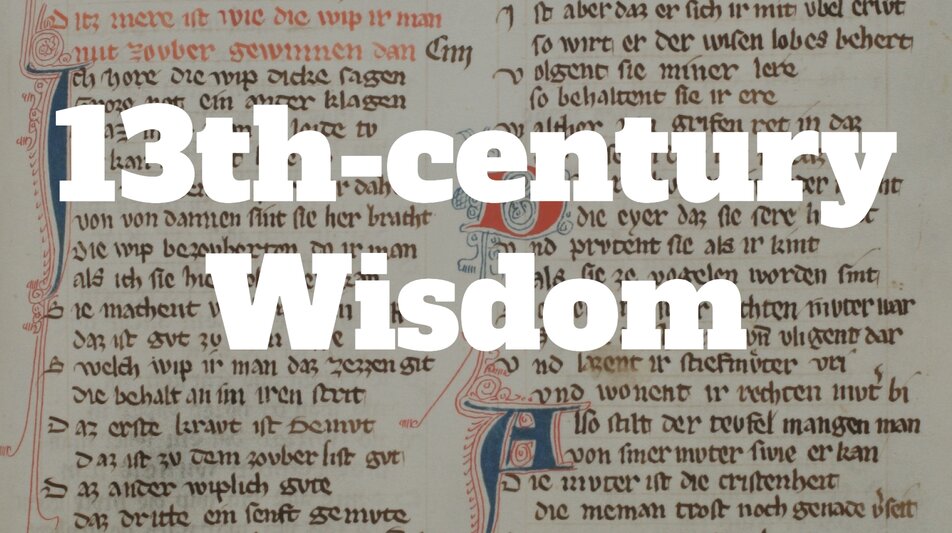 13th-century
Wisdom
Ditz mere ist wie die wip ir man
mit zouber gewinnen dan
Ich hore die wip dicke sagen
ein ander klagen
kan
von von dannen sint sie her bracht
die wip bezouberten do ir man
als ich sie
Sie machent
daz ist gvt zv
Swelch wip ir man daz zezzen git
die behalt an im iren strit
Daz erste kravt ist demvt
daz ist zv dem zouber list gvt
Daz ander wiplich gvte
daz dritte ein senft gemvte
ist aber daz er sich ir mit vbel erwt
so wirt er der wisen lobes behert
Volgent sie miner lere
so behaltent sie ir ere
Walther grifen ret in daz
die eyer daz sie sere
vnd prvtent sie als ir kint
als sie ze vogelen worden sint
rechten mvter war
vn̄ vligent dar
Vnd lazent ir stiefmvter vri
vnd wonent ir rechten mvt' bi
Also stilt der tevfel mangen man
von siner mvter swie er kan
Die mvter ist die cristenheit
die nieman trost noch genade v'seit